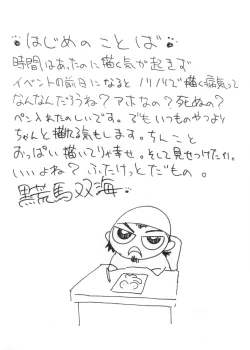 はじめのことば
時間はあったのに描く気が起きず
イベントの前日になるとノリノリで描く病気って
なんなんだろうね？アホなの？死ぬの？
ペン入れたのしいです。でもいつものやつより
ちゃんと描けてる気もします。ちんこと
おっぱい描いてりゃ幸せ。そして見せつけたい。
いいよね？ふたけっとだもの。
黒荒馬双海